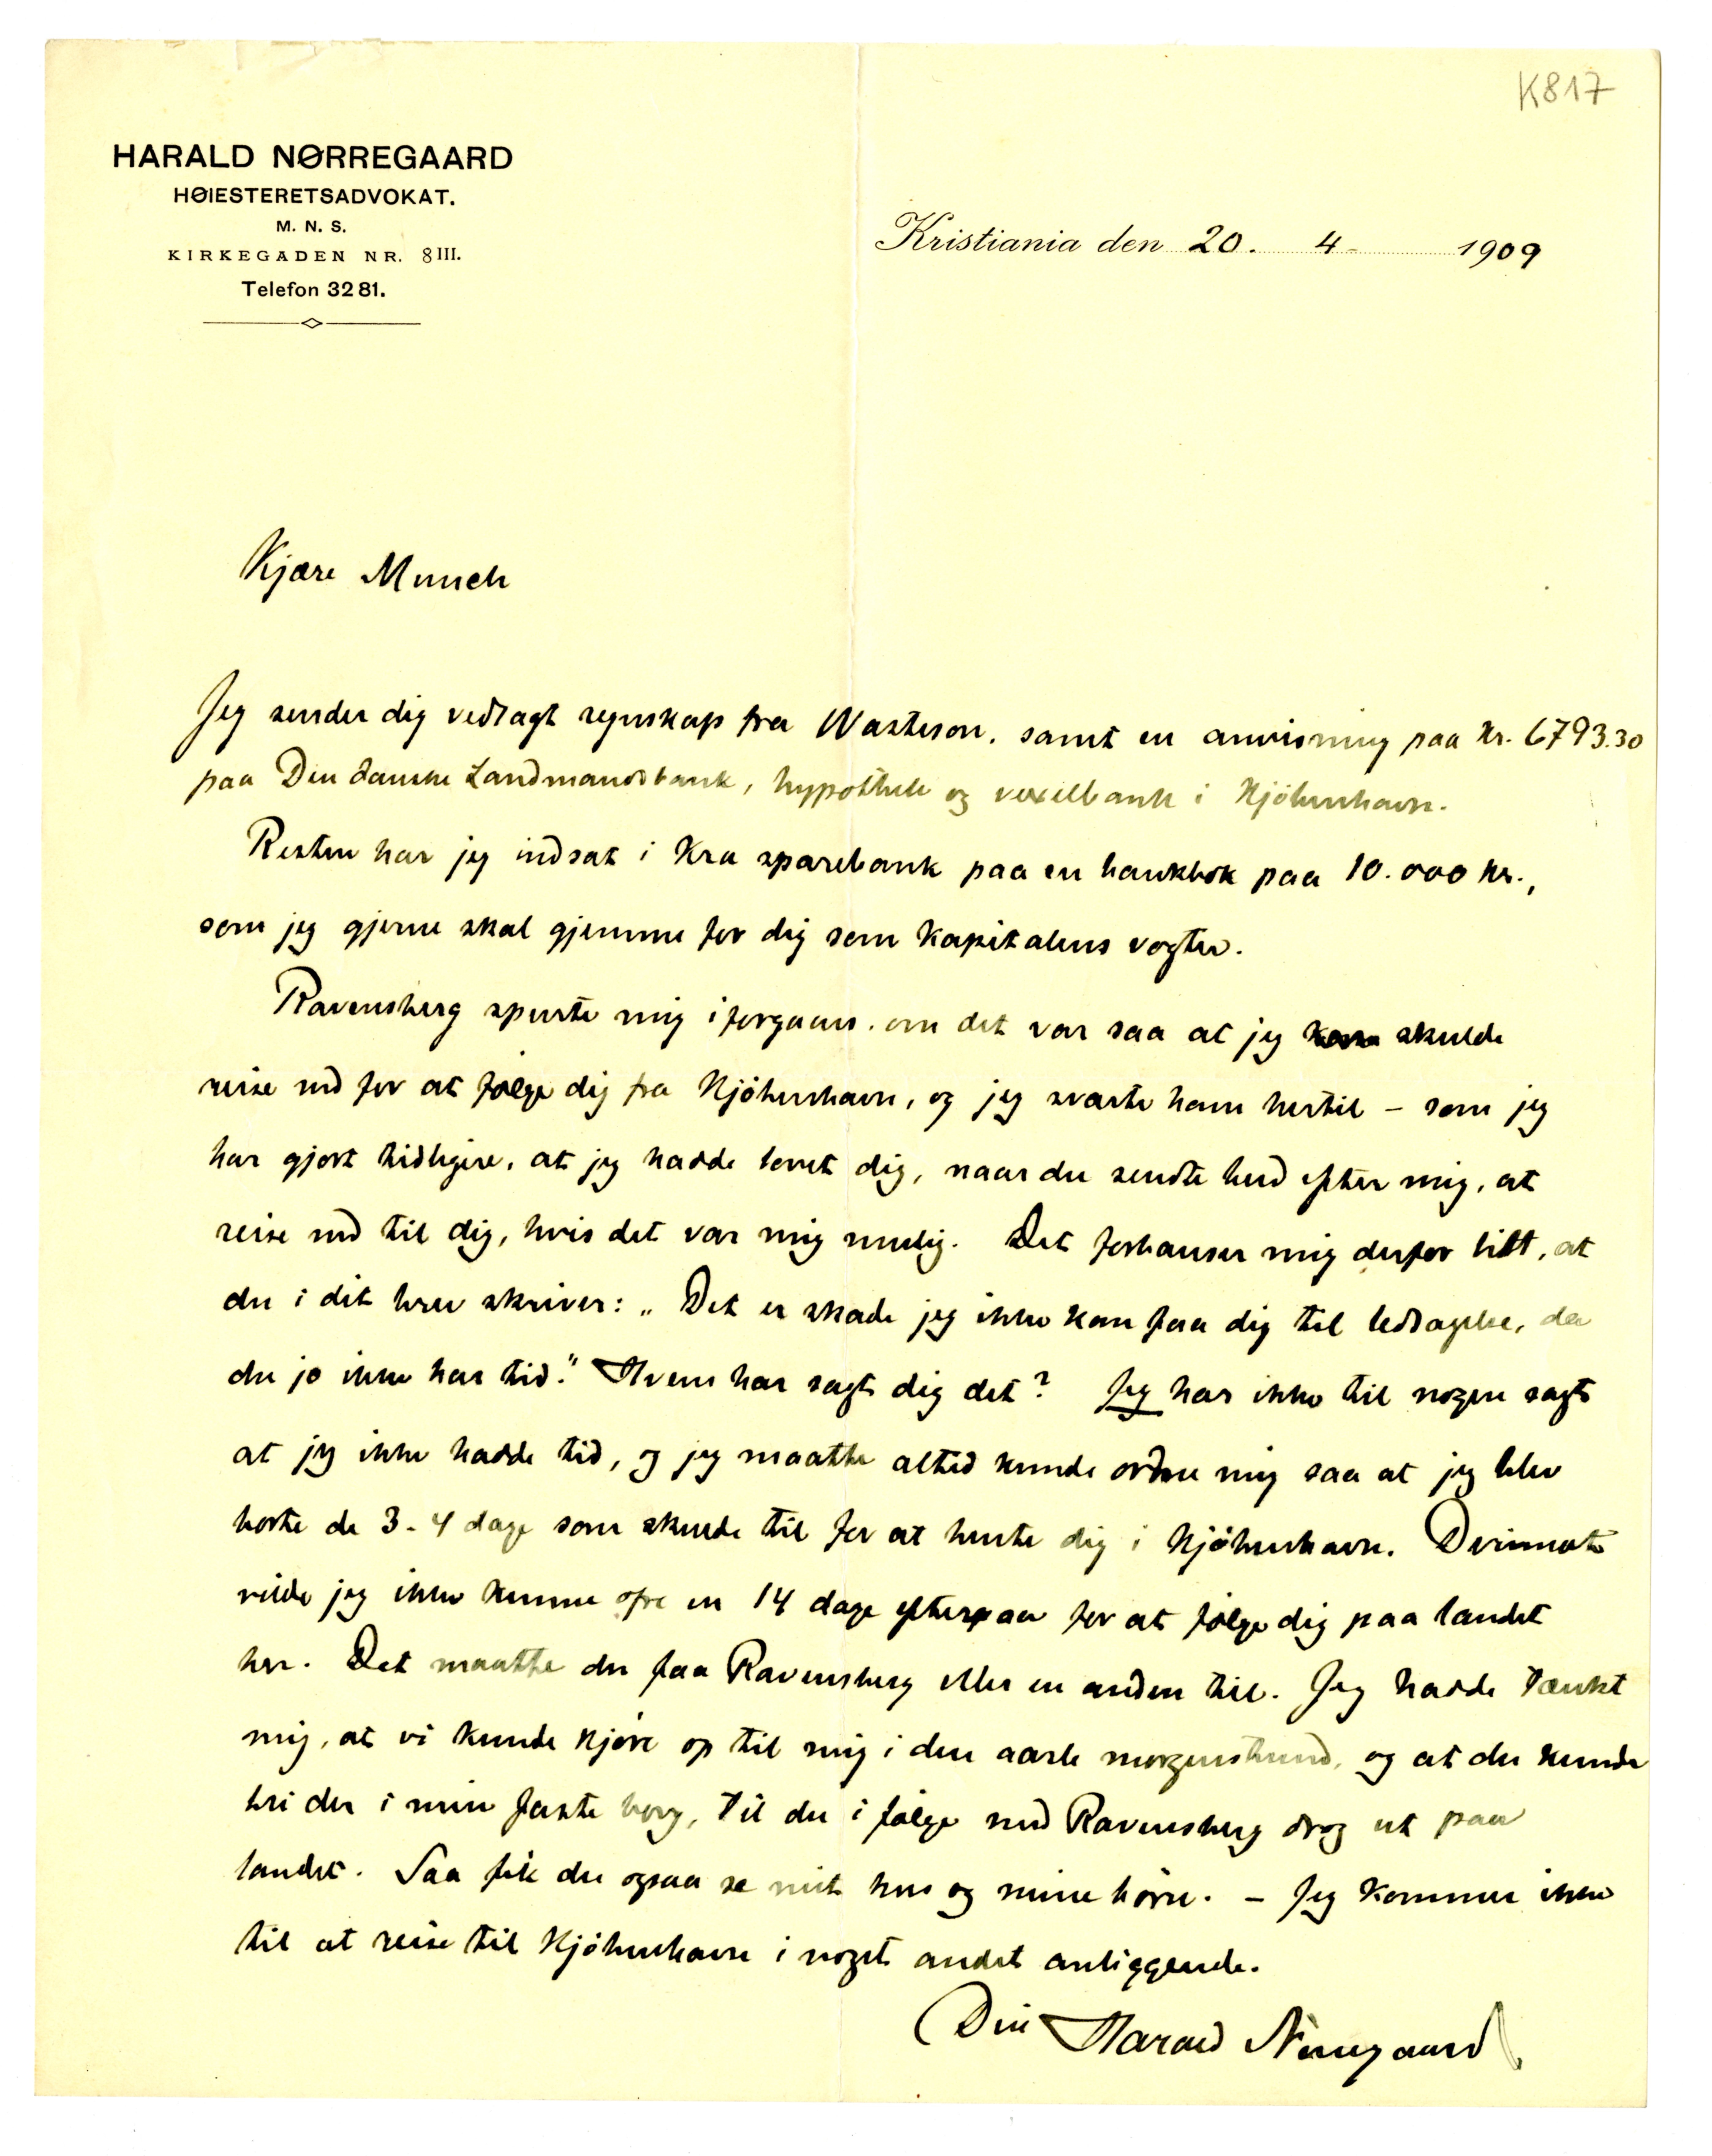 K817
HARALD NØRREGAARD
HØIESTERETSADVOKAT.
M. N. S.
KIRKEGADEN NR. 8III.
Telefon 3281.
Kristiania den 20. 4- 1909
Kjære Munch
Jeg sender dig vedlagt regnskap fra Warteson, samt en anvisning paa kr. 6793.30
paa Den danske Landmandsbank, hypothek og vexelbank i Kjöbenhavn.
Resten har jeg indsat i Kra sparebank paa en bankbok paa 10.000 kr.,
som jeg gjerne skal gjemme for dig som kapitalens vogter.
Ravensberg spurte mig iforgaars, om det var saa at jeg skulde
reise ned for at fölge dig fra Kjöbenhavn, og jeg svarte ham hertil – som jeg
har gjort tidligere, at jeg hadde lovet dig, naar du sendte bud efter mig, at
reise ned til dig, hvis det var mig mulig. Det forbauser mig derfor litt, at
du i dit brev skriver: „Det er skade jeg ikke kan faa dig til ledsagelse, da
du jo ikke har tid." Hvem har sagt dig det? Jeg har ikke til nogen sagt
at jeg ikke hadde tid, og jeg maatte altid kunde ordne mig saa at jeg blev
borte de 3-4 dage som skulde til for at hente dig i Kjöbenhavn. Derimot
vilde jeg ikke kunne ofre en 14 dage efterpaa for at fölge dig paa landet
her. Det maatte du faa Ravensberg eller en anden til. Jeg hadde tænkt
mig, at vi kunde kjöre op til mig i den aarle morgenstund, og at du kunde
bli der i min faste borg, til du i fölge med Ravensberg drog ut paa
landet. Saa fik du ogsaa se mit hus og mine börn. – Jeg kommer ikke
til at reise til Kjöbenhavn i noget andet anliggende.
Din Harald Nørregaard